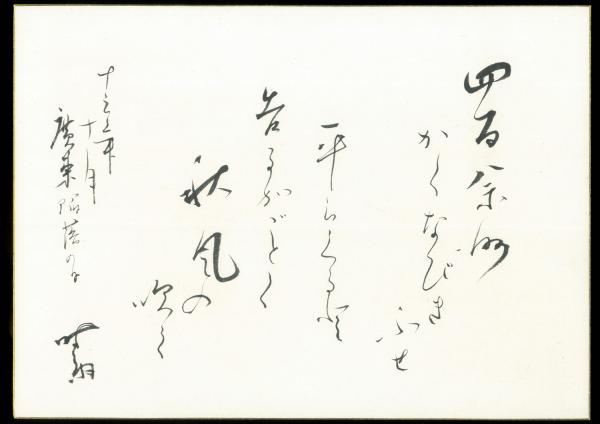 四百余州
かくなびき
ふせ
平らくると
告るがごとく
秋風の
吹く
十三年
十月
廣東陥落の日